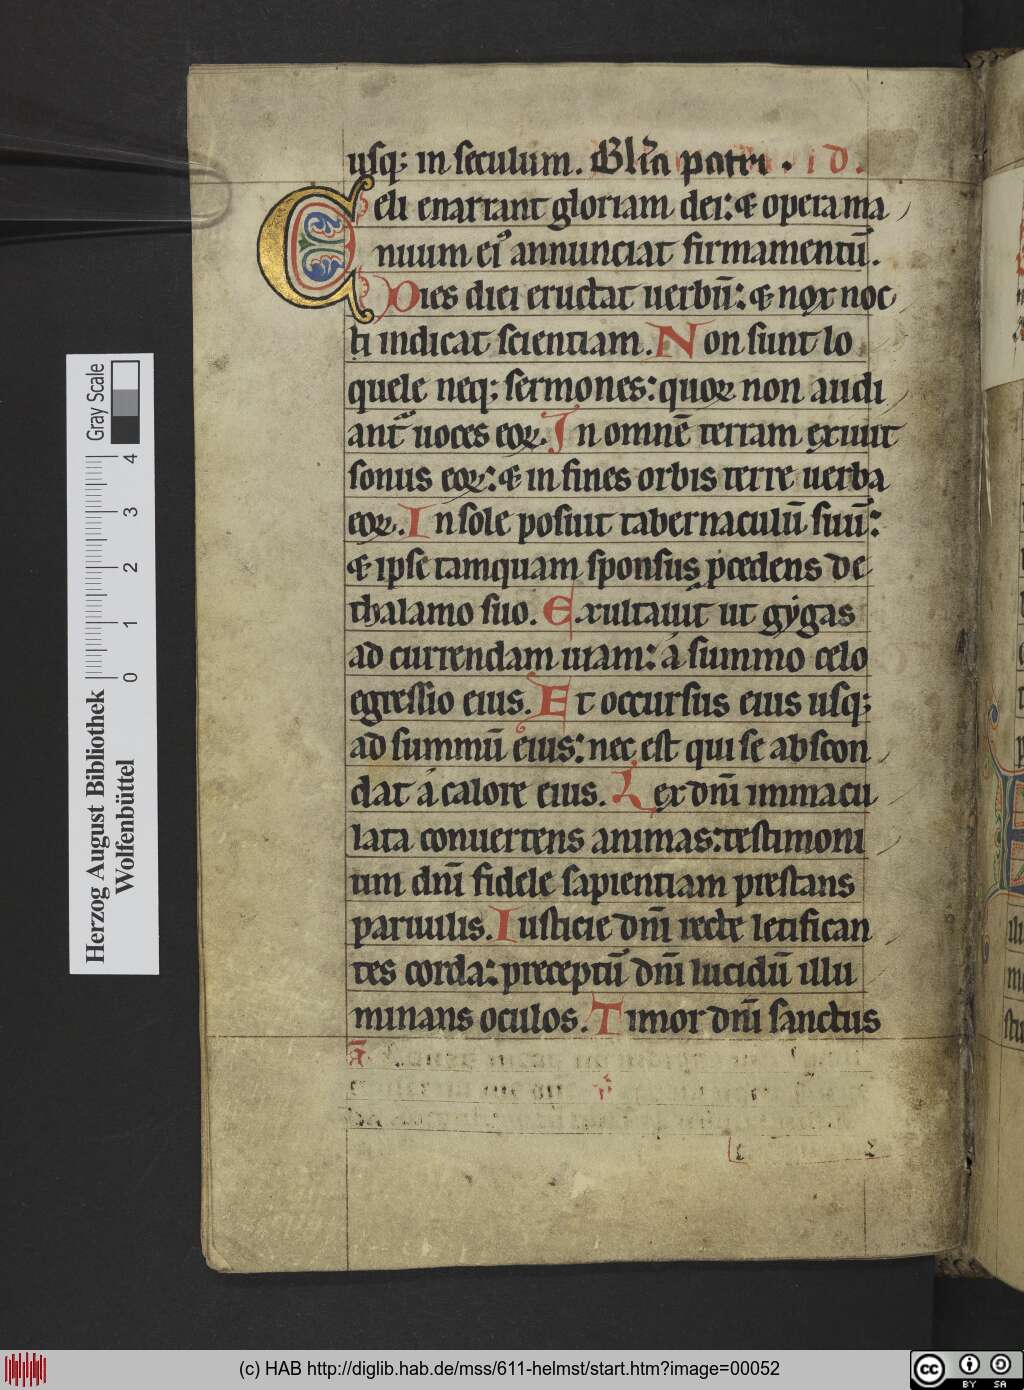 usq; in seculum. Gl̄ia patri . d.
Celi enarrant gloriam dei: & opera ma
nuum eiꝰ annunciat firmamentū.
Dies diei eructat uerbū: & nox noc
ti indicat scientiam. Non sunt lo
quele neq; sermones: quoꝝ non audi
ant᷑ uoces eoꝝ. In omnē terram exiuit
sonus eoꝝ: & in fines orbis terre uerba
eoꝝ. In sole posuit tabernaculū suū:
& ipse tamquam sponsus ꝓcedens de
thalamo suo. Exultauit ut gygas
ad currendam uiam: á summo celo
egressio eius. Et occursus eius usq;
ad summū eius: nec est qui se abscon
dat á calore eius. Lex dn̄i immacu
lata conuertens animas: testimoni
um dn̄i fidele sapientiam prestans
paruulis. Iusticie dn̄i recte letifican
tes corda: preceptū dn̄i lucidū illu
minans oculos. Timor dn̄i sanctus
Herzog August Bibliothek
Wolfenbüttel
Gray Scale
0 1 2 3 4
(c) HAB http://diglib.hab.de/mss/611-helmst/start.htm?image=00052
cc BY SA